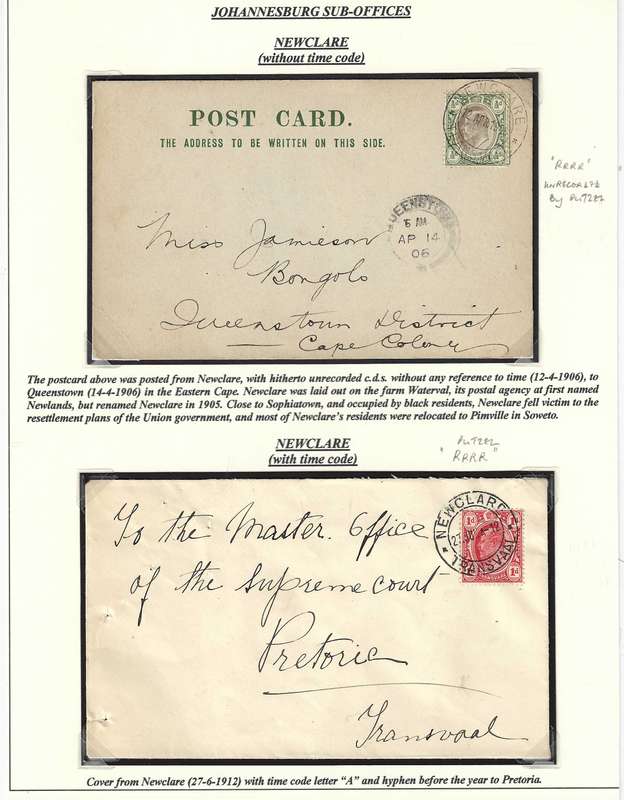 JOHANNESBURG SUB-OFFICES
NEWCLARE
(without time code)
POST CARD.
THE ADDRESS TO BE WRITTEN ON THIS SIDE.
NEWCLARE
"RRRR"
UNRECORDED
By PUTZEL
QUEENSTOWN
6 AM
AP 14
06
Miss Jamieson
Bongolo
Queenstown District
Cape Colony
The postcard above was posted from Newclare, with hitherto unrecorded c.d.s. without any reference to time (12-4-1906), to
Queenstown (14-4-1906) in the Eastern Cape. Newclare was laid out on the farm Waterval, its postal agency at first named
Newlands, but renamed Newclare in 1905. Close to Sophiatown, and occupied by black residents, Newclare fell victim to the
resettlement plans of the Union government, and most of Newclare's residents were relocated to Pimville in Soweto.
NEWCLARE
(with time code)
PUTZEL
"RRRR"
NEWCLARE
TRANSVAAL
1d 1d
To the Master. Office
of the Supreme court
Pretoria
Transvaal
Cover from Newclare (27-6-1912) with time code letter "A" and hyphen before the year to Pretoria.